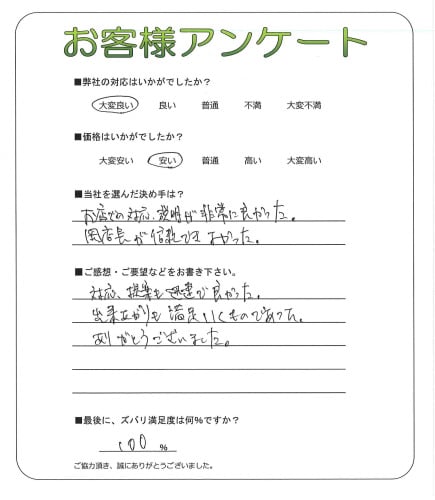 お客様アンケート
■弊社の対応はいかがでしたか？
大変良い 良い 普通 不満 大変不満
■価格はいかがでしたか？
大変安い 安い 普通 高い 大変高い
■当社を選んだ決め手は？
お店での対応、説明が非常に良かった。
店長が信頼でき よかった。
■ご感想・ご要望などをお書き下さい。
対応、提案も迅速で良かった。
出来あがりも満足いくものであった。
ありがとうございました。
■最後に、ズバリ満足度は何%ですか？
100 %
ご協力頂き、誠にありがとうございました。